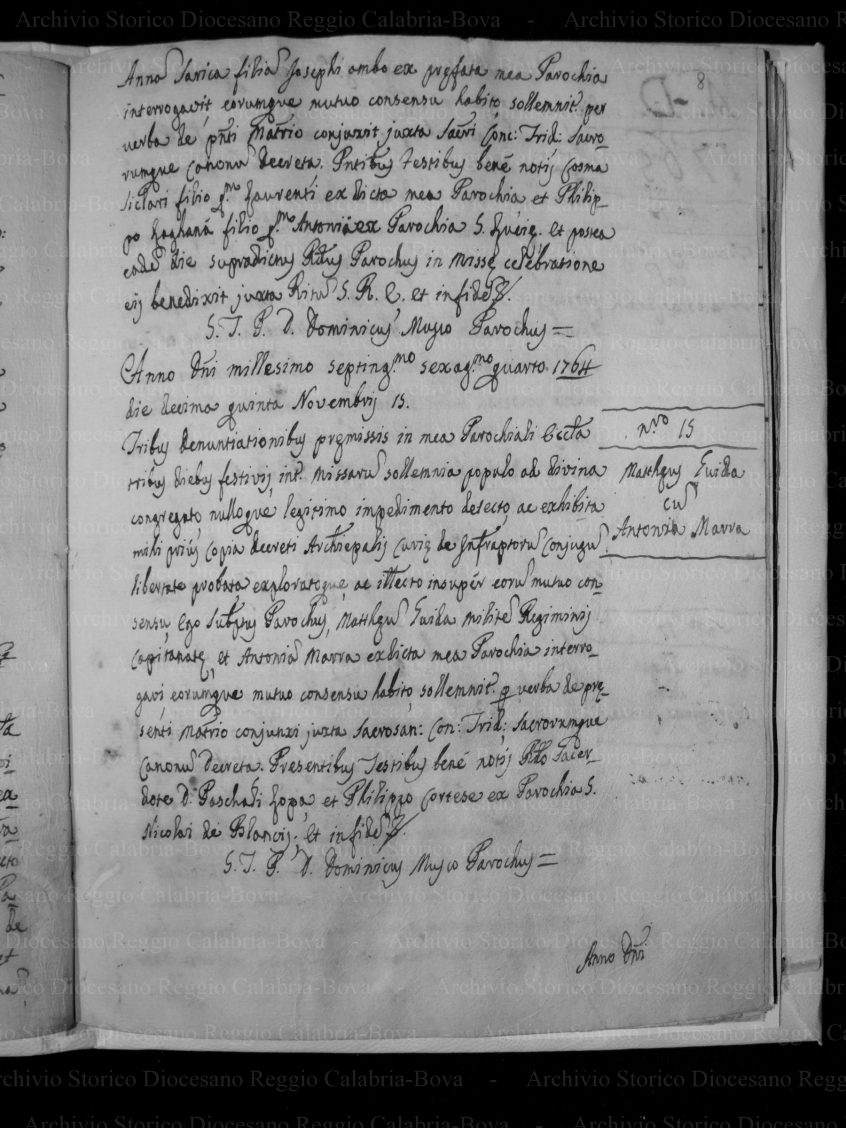 8
Annā Sarica filiā Josephi ambo ex pręfata mea Parochia
interrogavit, eorumque mutuo consensu habito sollemnit.ʳ per
verba de pñti Matrio conjunxit juxta Sacri Conc: Trid: Sacro-
rumque canonū decreta. Pñtibus testibus bené notis Cosma
Siclari filio q.ᵐ Laurenti ex dicta mea Parochia et Philip-
po Laganá filio q.ᵐ Antonii ex Parochia S. et postea
eadē die supradictus Rdus Parochus in missę celebratione
eis benedixit juxta Ritū S. R. E. et in fidē
S. T. P. D. Dominicus Musco Parochus =
Anno Dñi millesimo septing.ᵐᵒ sexag.ᵐᵒ quarto 1764
die decima quinta Novembris 15.
Tribus denuntiationibus pręmissis in mea Parochiali Eccła
tribus diebus festivis int.ʳ missarū sollemnia populo ad divina
congregato, nulloque legitimo impedimento detecto, ac exhibita
mihi prius copia decreti Archiepalis Curię de Infraptorū Conjugū
libertate probata, exploratoque, ac illecto insupér eorū mutuo con-
sensu Ego Subptus Parochus, Matthęū Guida militē Regiminis
Capitanatę, et Antoniā Marra ex dicta mea Parochia interro-
gavi, eorumque mutuo consensu habito, sollemnit.ʳ p verba de prę-
senti Matrio conjunxi juxta Sacrosan: Con: Trid: Sacrorumque
Canonū Decreta. Presentibus Testibus bené notis Rdo Sacer-
dote D. Paschali Zopa, et Philippo Cortese ex Parochia S.
Nicolai de Blancis, et in fidē
S. T. P. D. Dominicus Musco Parochus =
n.ʳᵒ 15
Matthęus Guida
cū
Antonia Marra
Anno Dñi
Archivio Storico Diocesano Reggio Calabria-Bova - Archivio Storico Diocesano Reggio Calabria-Bova